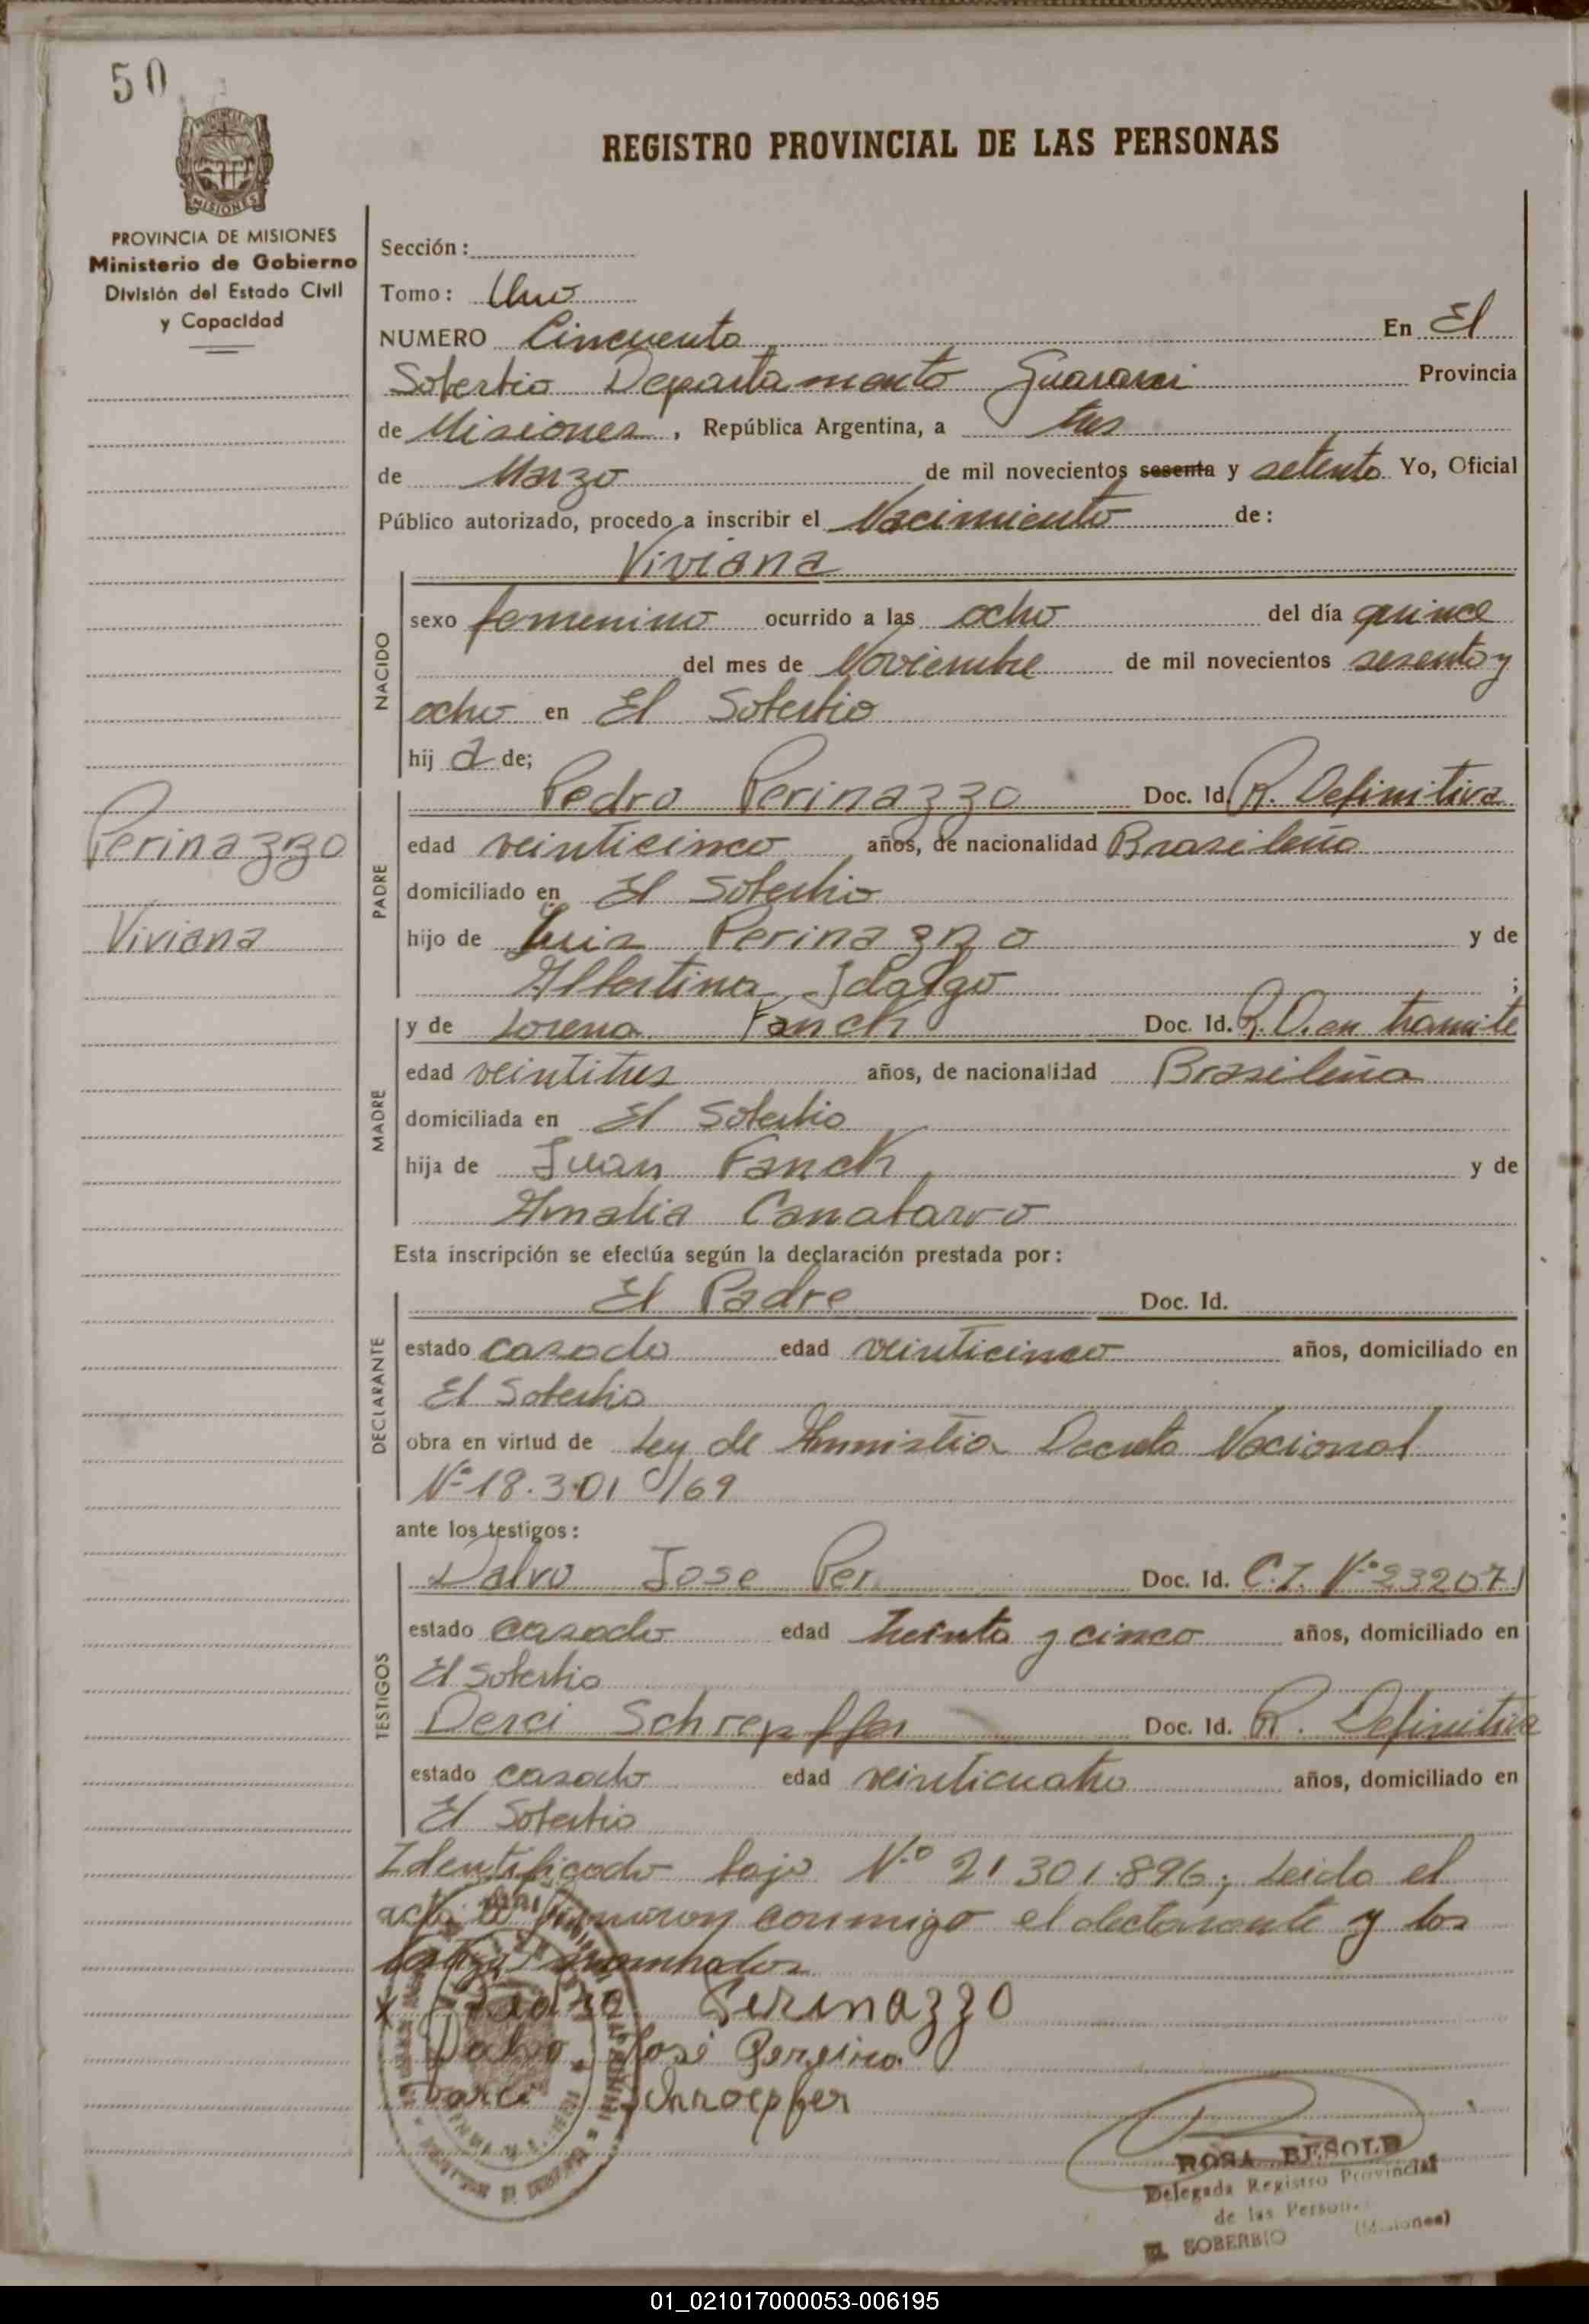 50
REGISTRO PROVINCIAL DE LAS PERSONAS
MISIONES
PROVINCIA DE MISIONES
Ministerio de Gobierno
División del Estado Civil
y Capacidad
Sección:
Tomo: Uno
NUMERO Cincuenta En El
Soberbio Departamento Guarani Provincia
de Misiones, República Argentina, a tres
de Marzo de mil novecientos sesenta y setenta Yo, Oficial
Público autorizado, procedo a inscribir el Nacimiento de:
Viviana
NACIDO
sexo femenino ocurrido a las ocho del día quince
del mes de Noviembre de mil novecientos sesenta y
ocho en El Soberbio
hij a de;
Perinazzo
Viviana
PADRE
Pedro Perinazzo Doc. Id. R. Definitiva
edad veinticinco años, de nacionalidad Brasileña
domiciliado en El Soberbio
hijo de Luis Perinazzo y de
Albertina Idalgo ;
MADRE
y de Lorena Fanch Doc. Id. R. D. en tramite
edad veintitres años, de nacionalidad Brasileña
domiciliada en El Soberbio
hija de Juan Fanch y de
Amalia Canabarro
Esta inscripción se efectúa según la declaración prestada por:
DECLARANTE
El Padre Doc. Id.
estado casado edad veinticinco años, domiciliado en
El Soberbio
obra en virtud de Ley de Amnistia Decreto Nacional
Nº 18.301/69
ante los testigos:
TESTIGOS
Dalvo Jose Per Doc. Id. C.I. Nº 232071
estado casado edad treinta y cinco años, domiciliado en
El Soberbio
Derci Schrepffer Doc. Id. R. Definitiva
estado casado edad veinticuatro años, domiciliado en
El Soberbio
Identificado bajo N.º 21.301.896; Leida el
acta la firmaron conmigo el declarante y los
testigos nombrados
x Pedro Perinazzo
Dalvo José Pereira
Darci Schroepfer
ROSA BESOLD
Delegada Registro Provincial
de las Personas
EL SOBERBIO (Misiones)
01_021017000053-006195